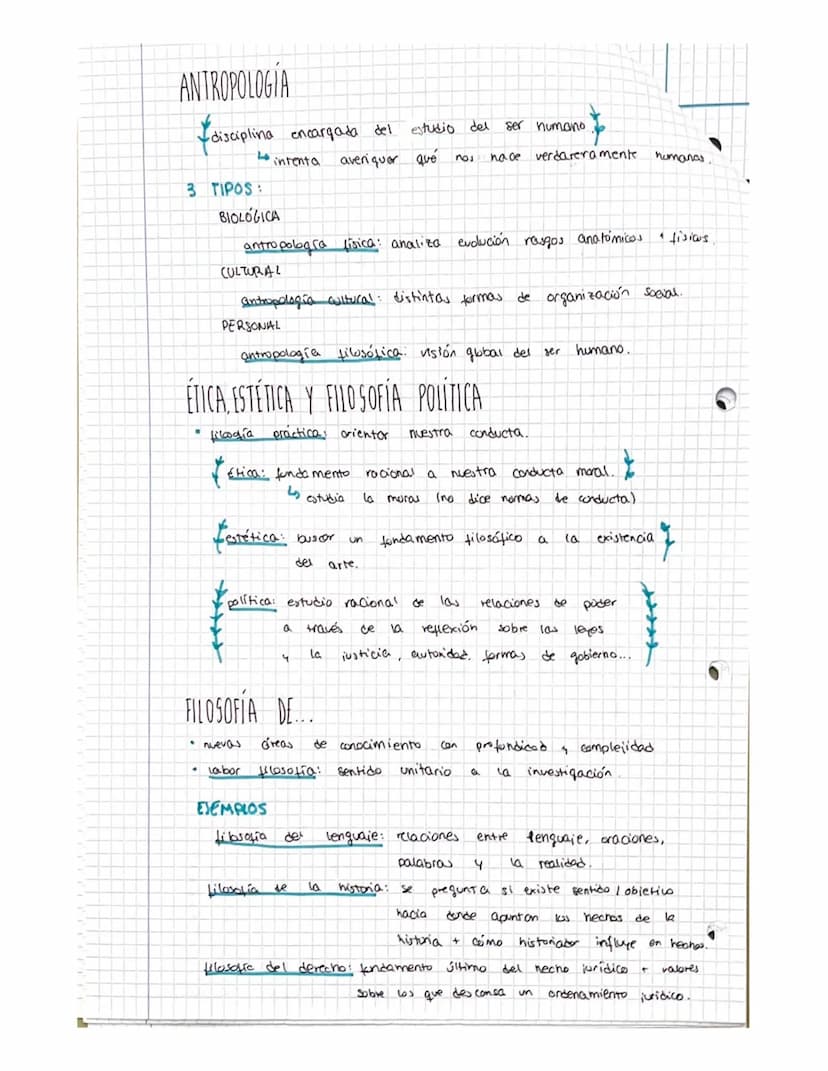 ANTROPOLOGÍA
disciplina encargada del estudio del ser humano.
↳ intenta averiguar qué nos hace verdareramente humanos.
3 TIPOS:
BIOLÓGICA
antropología física: analiza evolución rasgos anatómicos + físicos.
CULTURAL
antropología cultural: distintas formas de organización social.
PERSONAL
antropología filosófica: visión global del ser humano.
ÉTICA, ESTÉTICA Y FILOSOFÍA POLÍTICA
• filosofía práctica: orientar nuestra conducta.
ética: fundamento racional a nuestra conducta moral.
↳ estudia la moral (no dice normas de conducta)
estética: buscar un fundamento filosófico a la existencia
del arte.
política: estudio racional de las relaciones de poder
a través de la reflexión sobre las leyes
y la justicia, autoridad, formas de gobierno...
FILOSOFÍA DE...
• nuevas áreas de conocimiento con profundidad y complejidad
• labor filosofía: sentido unitario a la investigación.
EJEMPLOS
filosofía del lenguaje: relaciones entre lenguaje, oraciones,
palabras y la realidad.
filosofía de la historia: se pregunta si existe sentido / objetivo
hacia donde apuntan los hechos de la
historia + cómo historiador influye en hechos.
filosofía del derecho: fundamento último del hecho jurídico + valores
sobre los que descansa un ordenamiento jurídico.